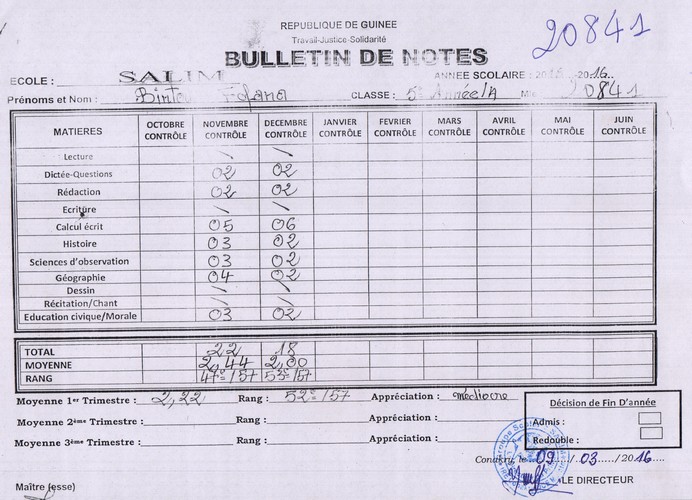 REPUBLIQUE DE GUINEE
Travail-Justice-Solidarité
20841
BULLETIN DE NOTES
ECOLE : SALIM ANNEE SCOLAIRE : -2016
Prénoms et Nom : Bintou Fofana CLASSE : 5è Année/A Mle 20841
MATIERES OCTOBRE CONTRÔLE NOVEMBRE CONTRÔLE DECEMBRE CONTRÔLE JANVIER CONTRÔLE FEVRIER CONTRÔLE MARS CONTRÔLE AVRIL CONTRÔLE MAI CONTRÔLE JUIN CONTRÔLE
Lecture \ \
Dictée-Questions 02 02
Rédaction 02 02
Ecriture \ \
Calcul écrit 05 06
Histoire 03 02
Sciences d'observation 03 02
Géographie 04 02
Dessin \ \
Récitation/Chant \ \
Education civique/Morale 03 02
TOTAL 22 18
MOYENNE 2,44 2,00
RANG 47è/57 53è/57
Moyenne 1er Trimestre : 2,22 Rang : 52è/57 Appréciation : médiocre
Moyenne 2ème Trimestre : Rang : Appréciation :
Moyenne 3ème Trimestre : Rang : Appréciation :
Décision de Fin D'année
Admis :
Redouble :
Conakry, le 09/03/2016
LE DIRECTEUR
Maître (esse)